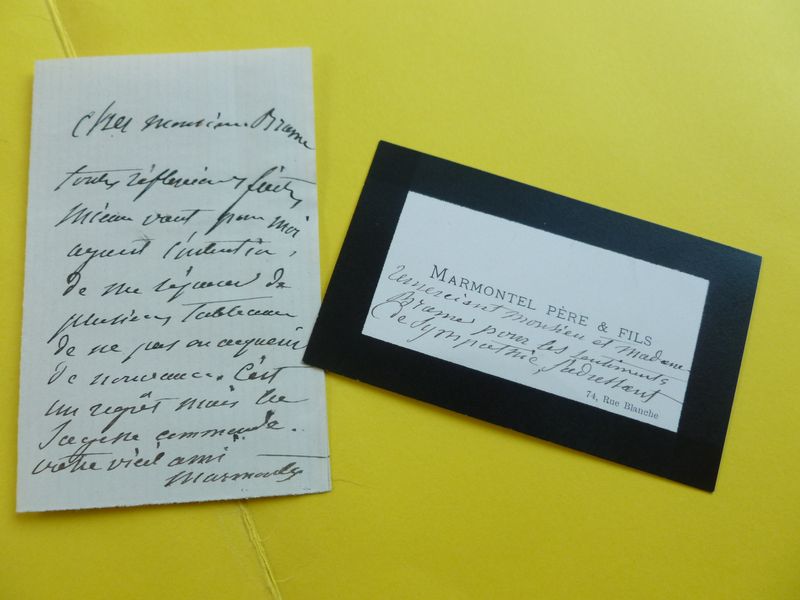 cher monsieur Brame
toutes réflexions faites
mieux vaut pour moi
ayant l'intention,
de me séparer de
plusieurs tableaux
de ne pas en acquérir
de nouveaux. C'est
un regrêt mais la
sagesse commande.
votre vieil ami
Marmontel
MARMONTEL PÈRE & FILS
remerciant monsieur et Madame
Brame pour les sentiments
de sympathie,
74, Rue Blanche